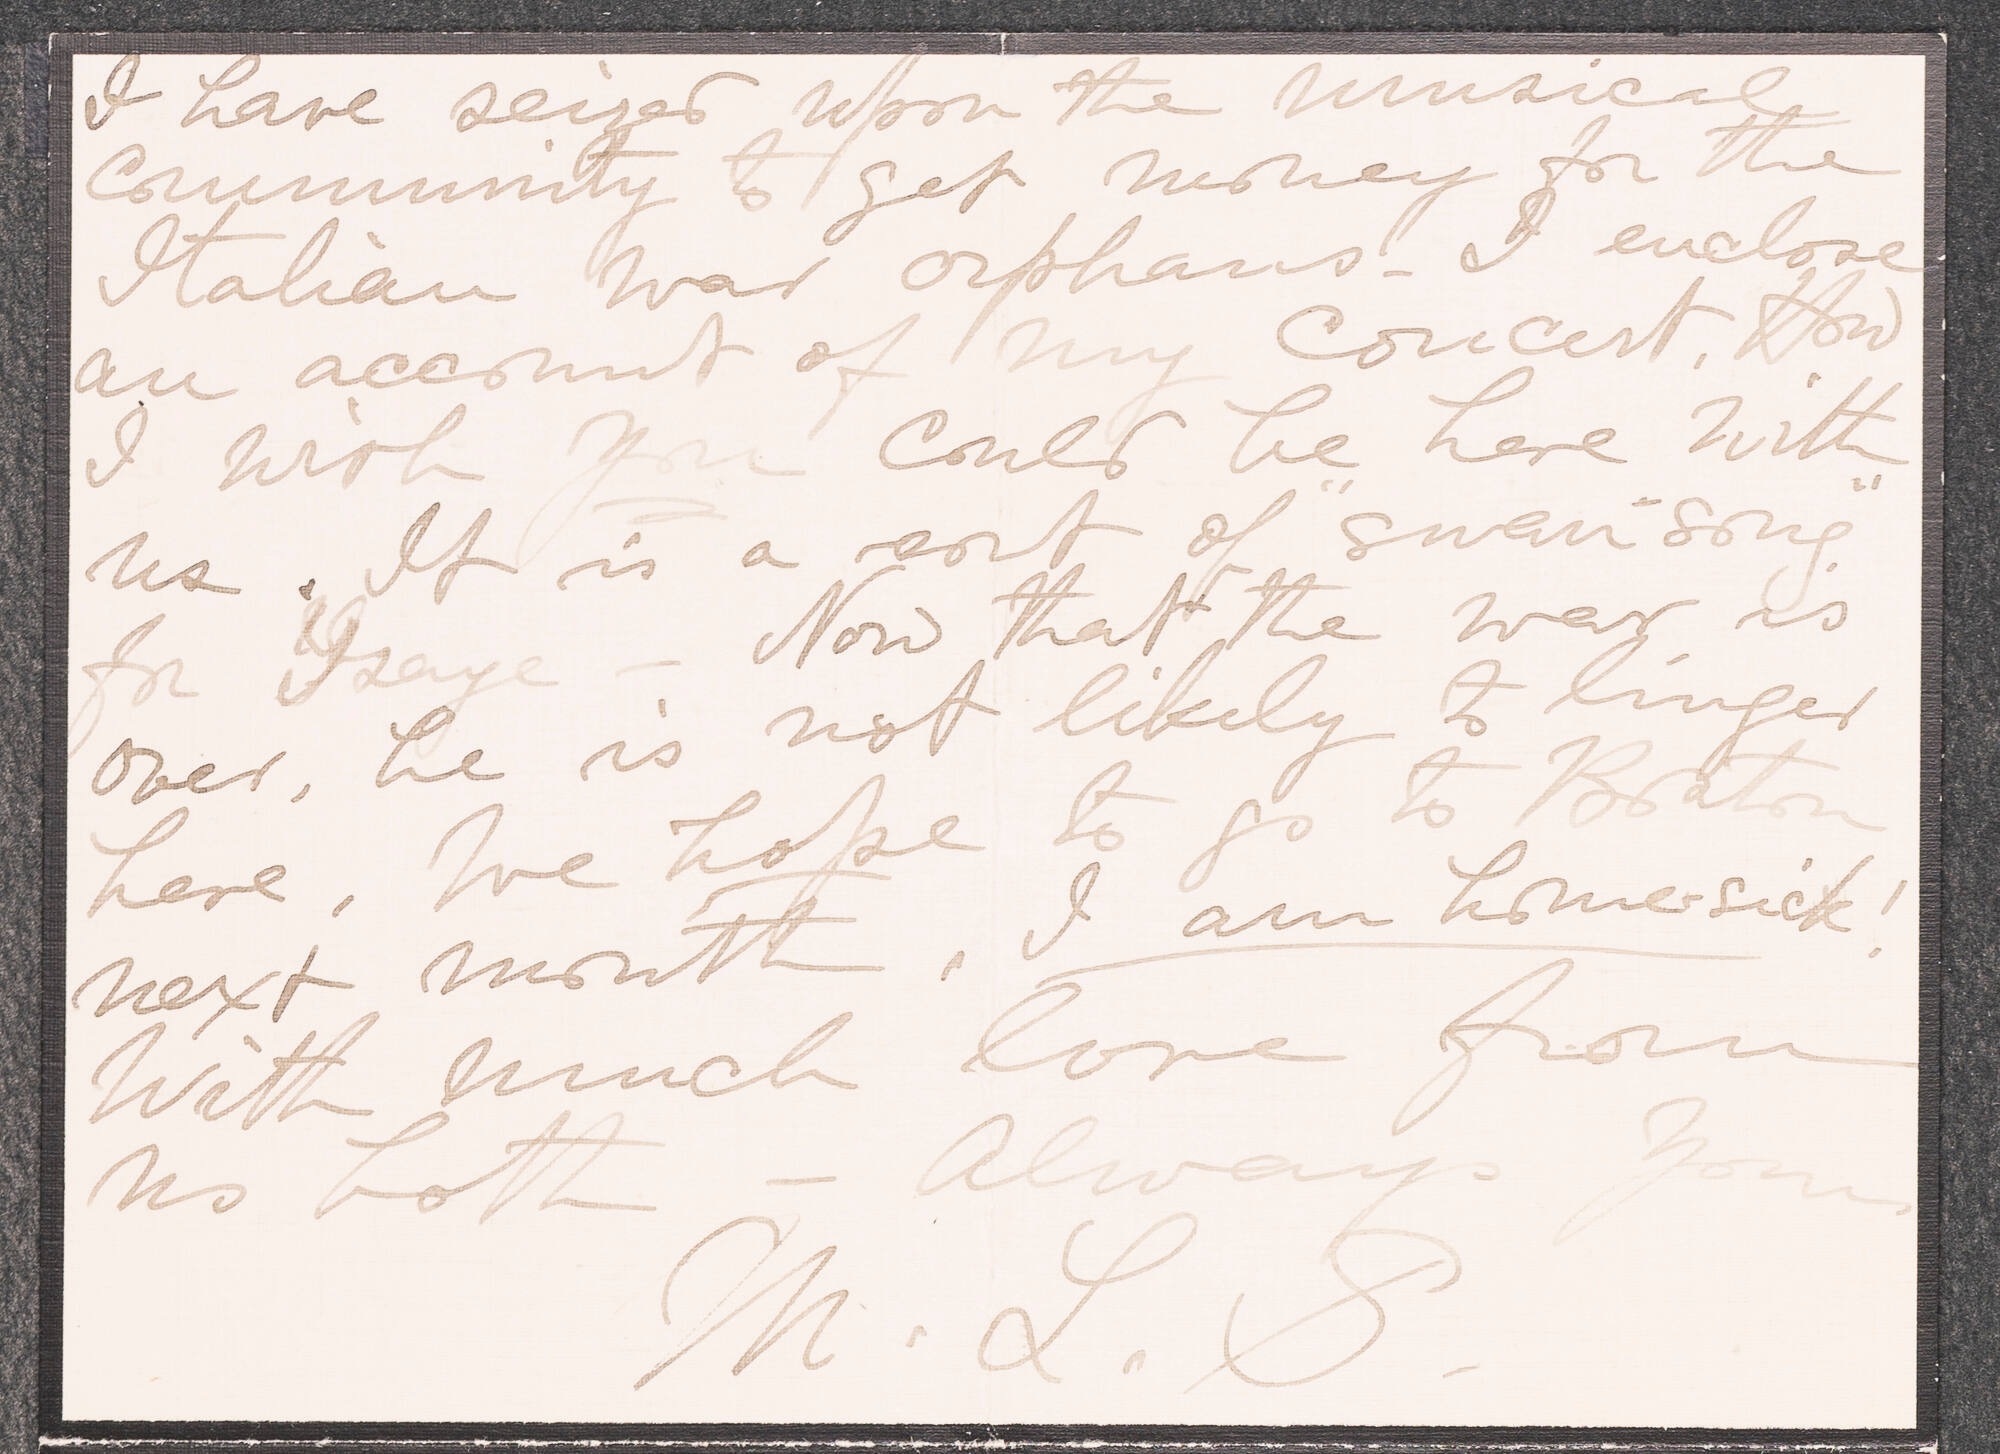 I have seized upon the musical
community to get money for the
Italian war orphans - I enclose
an account of my concert. How
I wish you could be here with
us. It is a sort of "swan-song"
for Ysaye - Now that the war is
over, he is not likely to linger
here, We hope to go to Boston
next month. I am home-sick!
With much love from
us both - Always yours,
M. L. S.